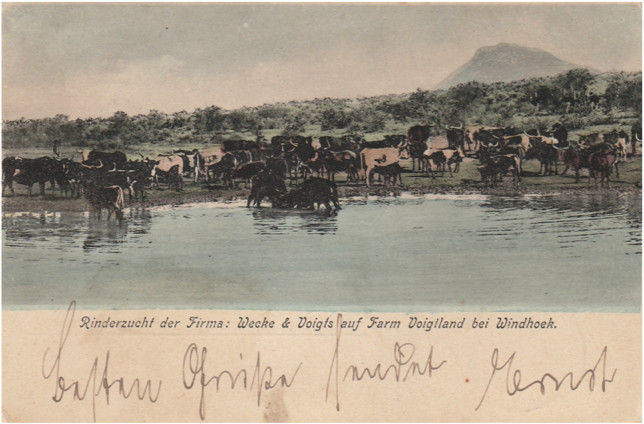 Rinderzucht der Firma: Wecke & Voigts auf Farm Voigtland bei Windhoek.
besten Grüße sendet Ernst